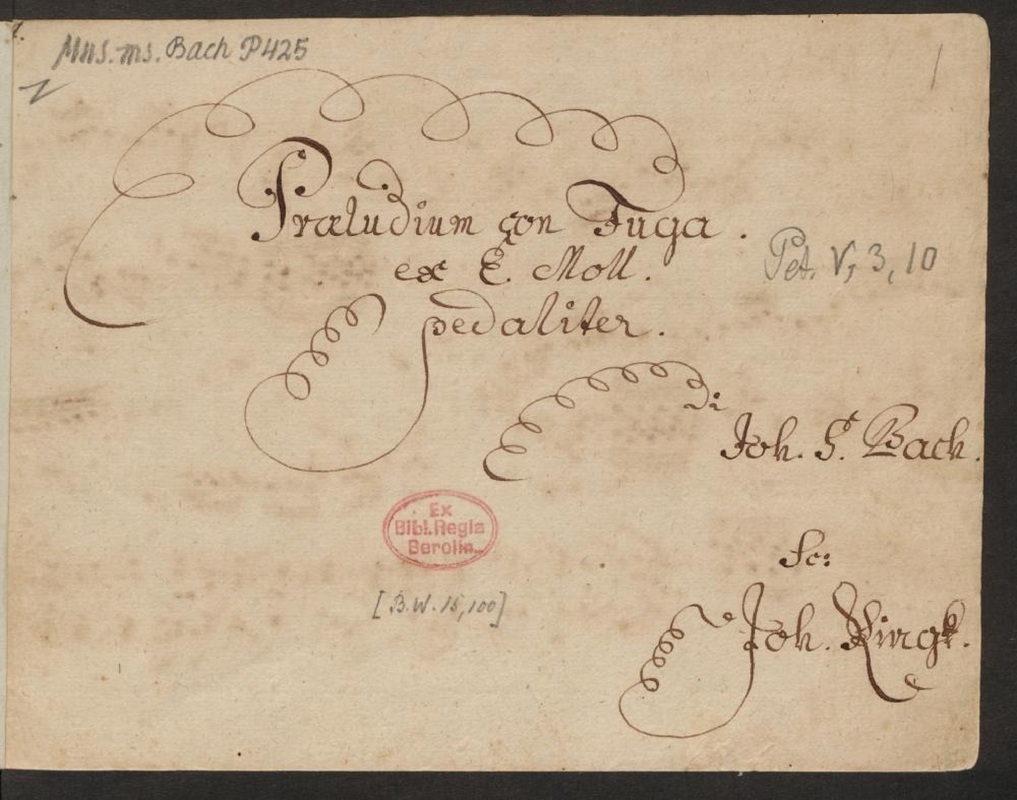 Mus. ms. Bach P 425
1
Præludium con Fuga.
ex E. Moll.
pedaliter.
Pet. V, 3, 10
di
Joh. S. Bach.
Ex
Bibl. Regia
Berolin.
[B.W. 15, 100]
Sc:
Joh. Ringk.